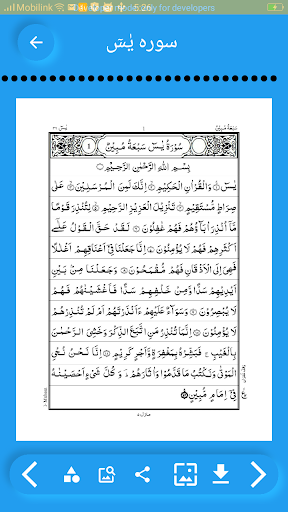 Mobilink 5:26
for developers
سوره یٰسٓ
سُوْرَةُ يٰسٓ سَبْعَةُ مُبِيْنٌ
بِسْمِ اللّٰهِ الرَّحْمٰنِ الرَّحِيْمِ
يٰسٓ وَالْقُرْاٰنِ الْحَكِيْمِ اِنَّكَ لَمِنَ الْمُرْسَلِيْنَ عَلٰى
صِرَاطٍ مُّسْتَقِيْمٍ تَنْزِيْلَ الْعَزِيْزِ الرَّحِيْمِ لِتُنْذِرَ قَوْمًا
مَّآ اُنْذِرَ اٰبَآؤُهُمْ فَهُمْ غٰفِلُوْنَ لَقَدْ حَقَّ الْقَوْلُ عَلٰٓى
اَكْثَرِهِمْ فَهُمْ لَا يُؤْمِنُوْنَ اِنَّا جَعَلْنَا فِيْٓ اَعْنَاقِهِمْ اَغْلٰلًا
فَهِيَ اِلَى الْاَذْقَانِ فَهُمْ مُّقْمَحُوْنَ وَجَعَلْنَا مِنْۢ بَيْنِ
اَيْدِيْهِمْ سَدًّا وَّمِنْ خَلْفِهِمْ سَدًّا فَاَغْشَيْنٰهُمْ فَهُمْ
لَا يُبْصِرُوْنَ وَسَوَآءٌ عَلَيْهِمْ ءَاَنْذَرْتَهُمْ اَمْ لَمْ تُنْذِرْهُمْ
لَا يُؤْمِنُوْنَ اِنَّمَا تُنْذِرُ مَنِ اتَّبَعَ الذِّكْرَ وَخَشِيَ الرَّحْمٰنَ
بِالْغَيْبِ فَبَشِّرْهُ بِمَغْفِرَةٍ وَّاَجْرٍ كَرِيْمٍ اِنَّا نَحْنُ نُحْيِ
الْمَوْتٰى وَنَكْتُبُ مَا قَدَّمُوْا وَاٰثَارَهُمْ وَكُلَّ شَيْءٍ اَحْصَيْنٰهُ
فِيْٓ اِمَامٍ مُّبِيْنٍ